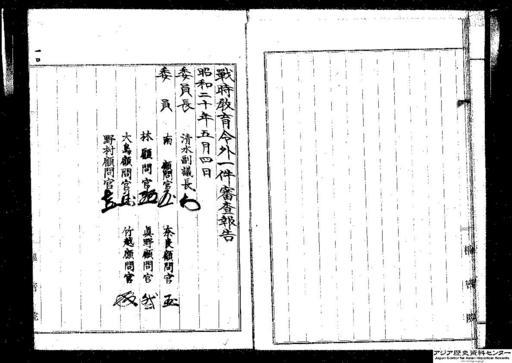 戰時敎育令外一件審査報告
昭和二十年五月四日
委員長 清水副議長
委員 南顧問官 奈良顧問官
林顧問官 眞野顧問官
大島顧問官 竹越顧問官
野村顧問官
アジア歴史資料センター
Japan Center for Asian Historical Records